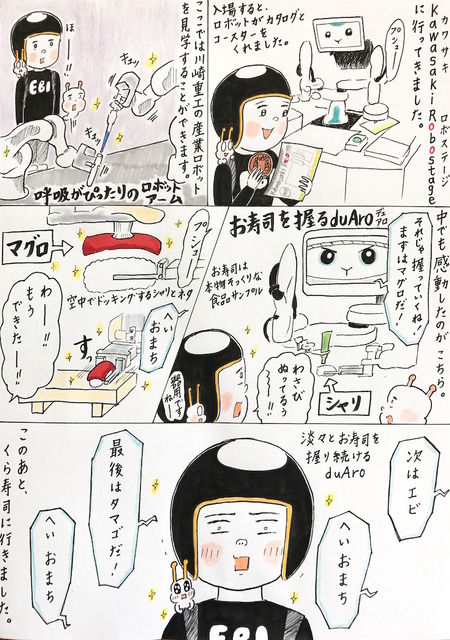 カワサキ ロボステージ
Kawasaki Robostage
に行ってきました。
入場すると、
ロボットがカタログと
コースターを
くれました。
プシュー
ここでは川崎重工の産業ロボット
を見学することができます。
ほー!!
キュッ
キュッ
EBI
呼吸がぴったりのロボット
アーム
中でも感動したのがこちら。
お寿司を握るduAro
デュアロ
それじゃ握っていくね!
まずはマグロだ!
お寿司は
本物そっくりな
食品サンプル
わさび
ぬってるぅ
!!
シャリ
器用ですね
プシュー
マグロ
空中でドッキングするシャリとネタ
へい
おまち
すっ
わー!!
もう
できたー!!
淡々とお寿司を
握り続ける
duAro
次はエビ
へいおまち
最後はタマゴだ!
へいおまち
EBI
このあと、
くら寿司に行きました。